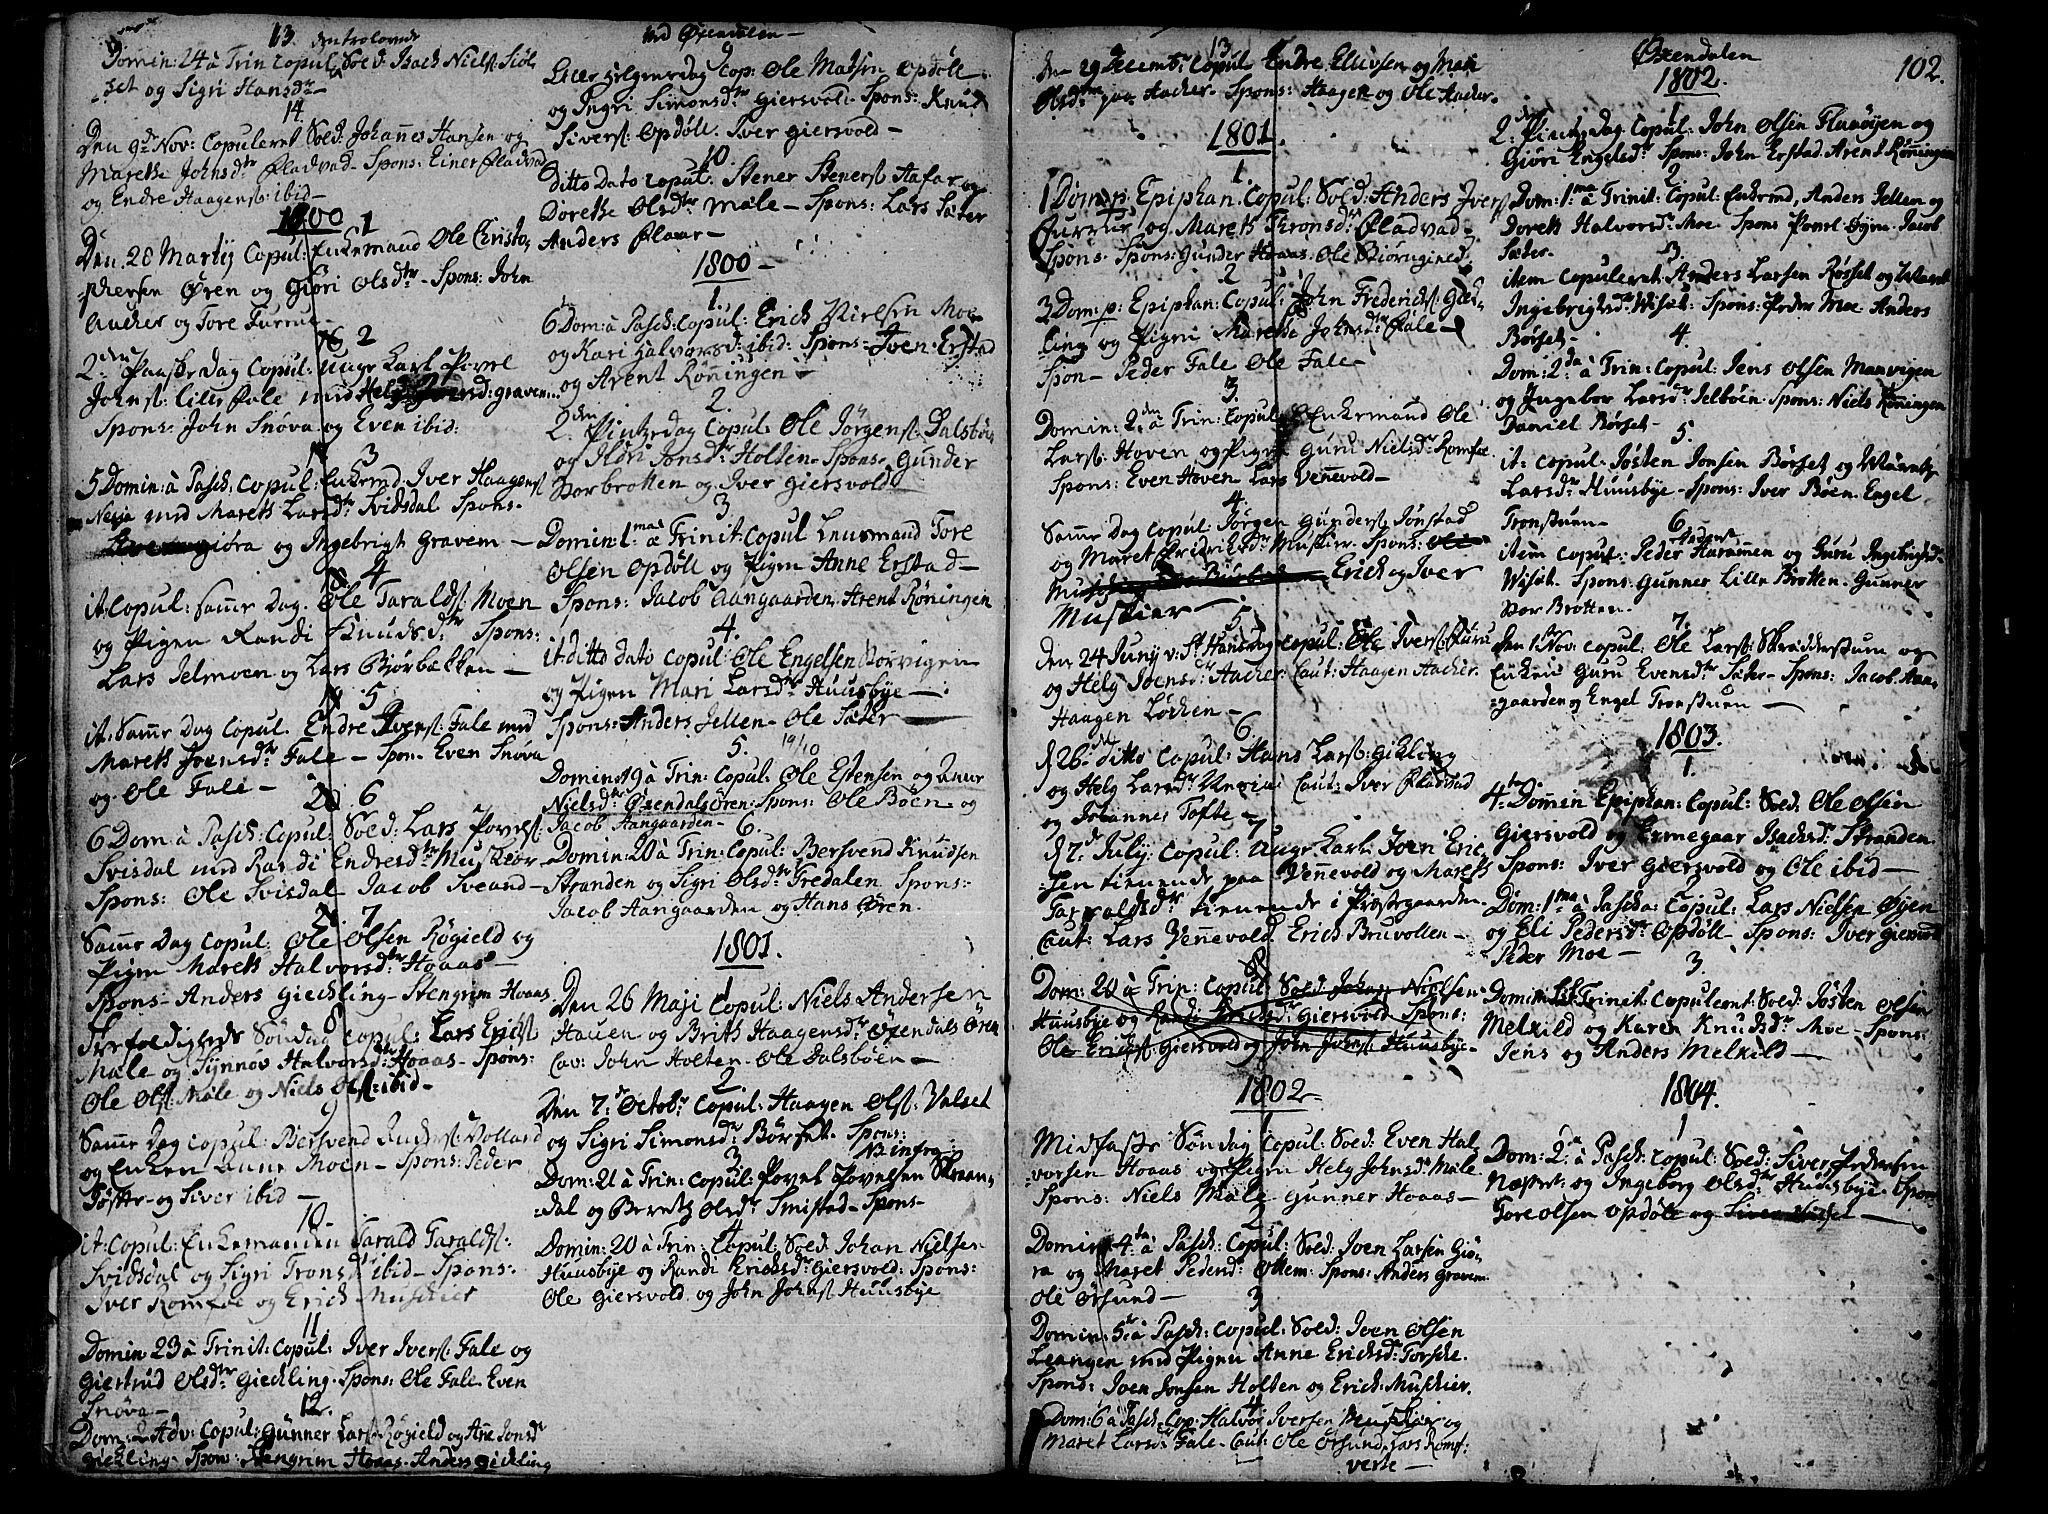 13. den trolovede
Domin: 24 à Trin Copul: Sold: Isach Niels: Siöl
set og Sigri Hansdr
14.
Den 9de Nov: Copuleret Sold: Johannes Hansen og
Marethe Johnsdtr Fladvad Spons: Einer Fladvad
og Endre Haagens: ibid
1800 1
Den 28 Martij Copul: Enkemand Ole Christo
phersen Øren og Giöri Olsdtr Spons: John
Aacher og Tore Furrue
2
2den Paaskedag Copul: unge Karl Povel
Johns: Lille Fale med Helg graven
Spons: John Snöva og Even ibid:
3
5 Domin: à Pasch: Copul: Enkemd Iver Haagens:
Nesja med Mareth Larsdtr Svidsdal Spons.
giöra og Ingebrigt Gravem
4
it. Copul: samme Dag. Ole Taralds: Moen
og Pigen Randi Knudsdtr Spons:
Lars Jelmoen og Lars Biörbækken
5
it. Samme Dag Copul. Endre Ivers: Fale med
Mareth Joensdr Fale Spon. Even Snöva
og Ole Fale
6
6 Dom: à Pasch: Copul: Sold: Lars Povels:
Svisdal med Randi Endresdtr Muskiör
Spons: Ole Svisdal Jacob Sveand
7
Samme Dag Copul: Ole Olsen Rögield og
Pigen Mareth Halvorsdtr Hoaas
Spons Anders Gieckling Stengrim Hoaas
8
Trefoldigheds Söndag Copul: Lars Erichs:
Mäle og Synnöv Halvorsdtr Hoaas Spons:
Ole Ols: Mäle og Niels Ols: ibid
9
Samme Dag Copul: Bersvend Volland
og Enken Anne Moen Spons: Peder
Töfte og Siver ibid
10
it. Copul: Enkemanden Tarald Taralds:
Svidsdal og Sigri Tronsdr ibid Spons:
Iver Romfoe og Erich Muschier
11
Domin 23 à Trinit: Copul: Iver Ivers: Fale og
Giertrud Olsdtr Gieckling. Spons: Ole Fale Even
Snöva
12.
Dom: 2 Adv: Copul: Gunner Lars: Rögield og Ane Jonsdr
Gieckling. Spons: Stengrim Hoaas. Anders Gickling
ved Øxendalen
Løverhelgensdag Cop: Ole Madsen Opdöll
og Ingri Simonsdtr Giersvold Spons: Knud
Sivers: Opdöll. Iver Giersvold
10
Ditto Dato Copul: Stener Steners: Hafar og
Dorethe Olsdtr Mäle Spons: Lars Sæter
Anders Flaar
1800
1.
6 Dom: à Pasch: Copul: Erich Nielsen Moe
og Kari Halvorsd: ibid: Spons: Iven Erstad
og Arent Rönningen
2.
2den Pintzedag Copul. Ole Jörgens: Dalsböe
og Ildri Jonsdr Holten Spons: Gunder
Størbrotten og Iver Giersvold
3
Domin: 1ma à Trinit: Copul Lensmand Tore
Olsen Opdöll og Pigen Anne Erstad
Spons: Jacob Aangaarden. Arent Röningen
4.
it. ditto Dato Copul: Ole Engelsen Borvigen
og Pigen Mari Larsdtr Huusbye
Spons: Anders Jellen Ole Sæter
5. 19/10
Domin: 19 à Trin: Copul: Ole Estensen og Anne
Nielsdtr Øxendalsören Spons: Ole Böen og
Jacob Aangaarden 6.
Domin: 20 à Trin: Copul: Bersvend Knudsen
Stranden og Sigri Olsdtr Fredalen Spons:
Jacob Aangaarden og Hans Øren.
1801.
1
Den 26 Maji Copul: Niels Andersen
Hauen og Brith Haagensdtr Øxendals Øren
Cav: John Holten Ole Dalsböen
2.
Den 7de Octobr Copul: Haagen Ols: Valset
og Sigri Simonsdr Börset. Spons:
NB infra
3
Dom: 21 à Trin: Copul: Povel Povelsen Skraan
dal og Bereth Olsdtr Smistad Spons
4
Domin: 20 à Trin: Copul: Sold: Johan Nielsen
Huusbye og Randi Erichsdtr Giersvold: Spons:
Ole Giersvold og John Johns: Huusbye
13
den 29 Decembr Copul Endre Elivsen og Mari
Olsdtr paa Aacher. Spons: Haagen og Ole Aacher.
1801.
1.
1 Dom: p: Epiphan. Copul: Sold: Anders Ivers:
Furrue og Mareth Tronsdr Fladvad
Spons: Gunder Hoaas. Ole Biörugined.
2
3 Dom: p: Epiphan: Copul: John Frederichs: Gick
ling og Pigen Marethe Johnsdtr Fale
Spon Peder Fale Ole Fale
3.
Domin: 2den à Trin: Copul: Enkemand Ole
Lars: Hoven og Pigen Guru Nielsdr Romfoe
Spons: Even Hoven Lars Vennevold
4.
Samme Dag Copul: Jörgen Gunders: Jönstad
og Maret Fridrichsdr Muskier. Spons:
Erich og Iver
Muskier
5.
den 24 Junij v: St Hansdag Copul: Ole Ivers: Furu
og Helg Ivensdr Aacher. Caut: Haagen Aacher.
Haagen Löcken
6.
d 26de ditto Copul: Hans Lars: Gickling
og Helg Larsdtr Caut: Iver Fladvad
og Johannes Tofte
7
d 7de Julij: Copul: unge Karl Joen Eric
sen tienende paa Vennevold og Mareth
Taraldsdtr tienende i Præstegaarden
Caut: Lars Vennevold. Erich Bruvollen
Dom: 20 à Trin: Copul: Sold Johan Nielsen
Huusbye og Randi Erichsdr Giersvold Spons:
Ole Erichs: Giersvold og John Johns: Huusbye
1802
1
Midfaste Söndag Copul: Sold: Even Hal
vorsen Hoaas og Pigen Helg Johnsdr Mäle
Spons: Niels Mäle Gunner Hoaas
2
Domin: 4ta à Pasch: Copul: Sold: Iven Larsen Giö
ra og Maret Pedersdr Ottem. Spons: Anders Gravem
Ole Örsund
3
Domin: 5ta à Pasch: Copul: Sold: Iven Olsen
Leangen med Pigen Anne Ericksdr Torske.
Spond: Iven Jonsen Holten og Erich: Muschier.
4
Dom: 6 à Pasch: Cop: Halvor Iversen Muskier og
Maret Larsdr Fale Caut: Ole Örsund. Lars Romf:
verte
Øxendalen
102.
1802.
1
2den Pintzedag Copul: John Olsen Flaaöyen og
Giöri Engelsdr Spons: John Erstad. Arent Rönningen
2
Dom: 1ma à Trinit: Copul: Enkemd, Anders Jellen og
Doreth Halvorsdr Moe. Spons Povel Öyen Jacob
Sæter.
3.
item Copuleret: Anders Larsen Rösset og Maret
Ingebrigtsdr Wiset: Spons: Peder Moe Anders
Börset
4.
Dom: 2da à Trin: Copul: Jens Olsen Manvigen
og Ingebor Larsdr Jelböen. Spons: Niels Rönningen
Daniel Börset
5.
it: Copul: Josten Jonsen Börset og Mareth
Larsdr Huusbye Spons: Iver Böen Engel
Tronstuen
6.
item Copul: Peder Haltmen og Guru Ingebrigtsd
Wiset. Spons: Gunner Lille Brotten. Gunner
Stor Brotten.
7.
Den 1ste Nov: Copul: Ole Lars: Skredderstuen og
Enken Guru Evensdtr Sæter Spons: Jacob Aan
gaarden og Engel Tronstuen
1803.
1.
4te Domin Epiphan: Copul: Sold: Ole Olsen
Giersvold og Ermegaar Isachsdr Stranden
Spons: Iver Giersvold og Ole ibid
2
Dom: 1ma à Pascha: Copul: Lars Nielsen Øyen
og Eli Pedersdr Opdöll Spons: Iver Giersvold
Peder Moe
3.
Domin: 1st Trinit: Copuleret: Sold: Josten Olsen
Melkild og Karen Knudsdr Moe Spons:
Jens og Anders Melkild
1804.
1
Dom: 2da à Pasch: Copul: Sold: Siver Pedersen
Næsset og Ingeborg Olsdtr Huusbye. Spons
Tore Olsen Opdöll og